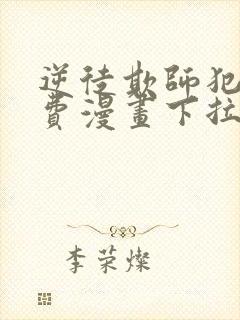 逆徒欺師犯
費漫畫下拉
李荣燦